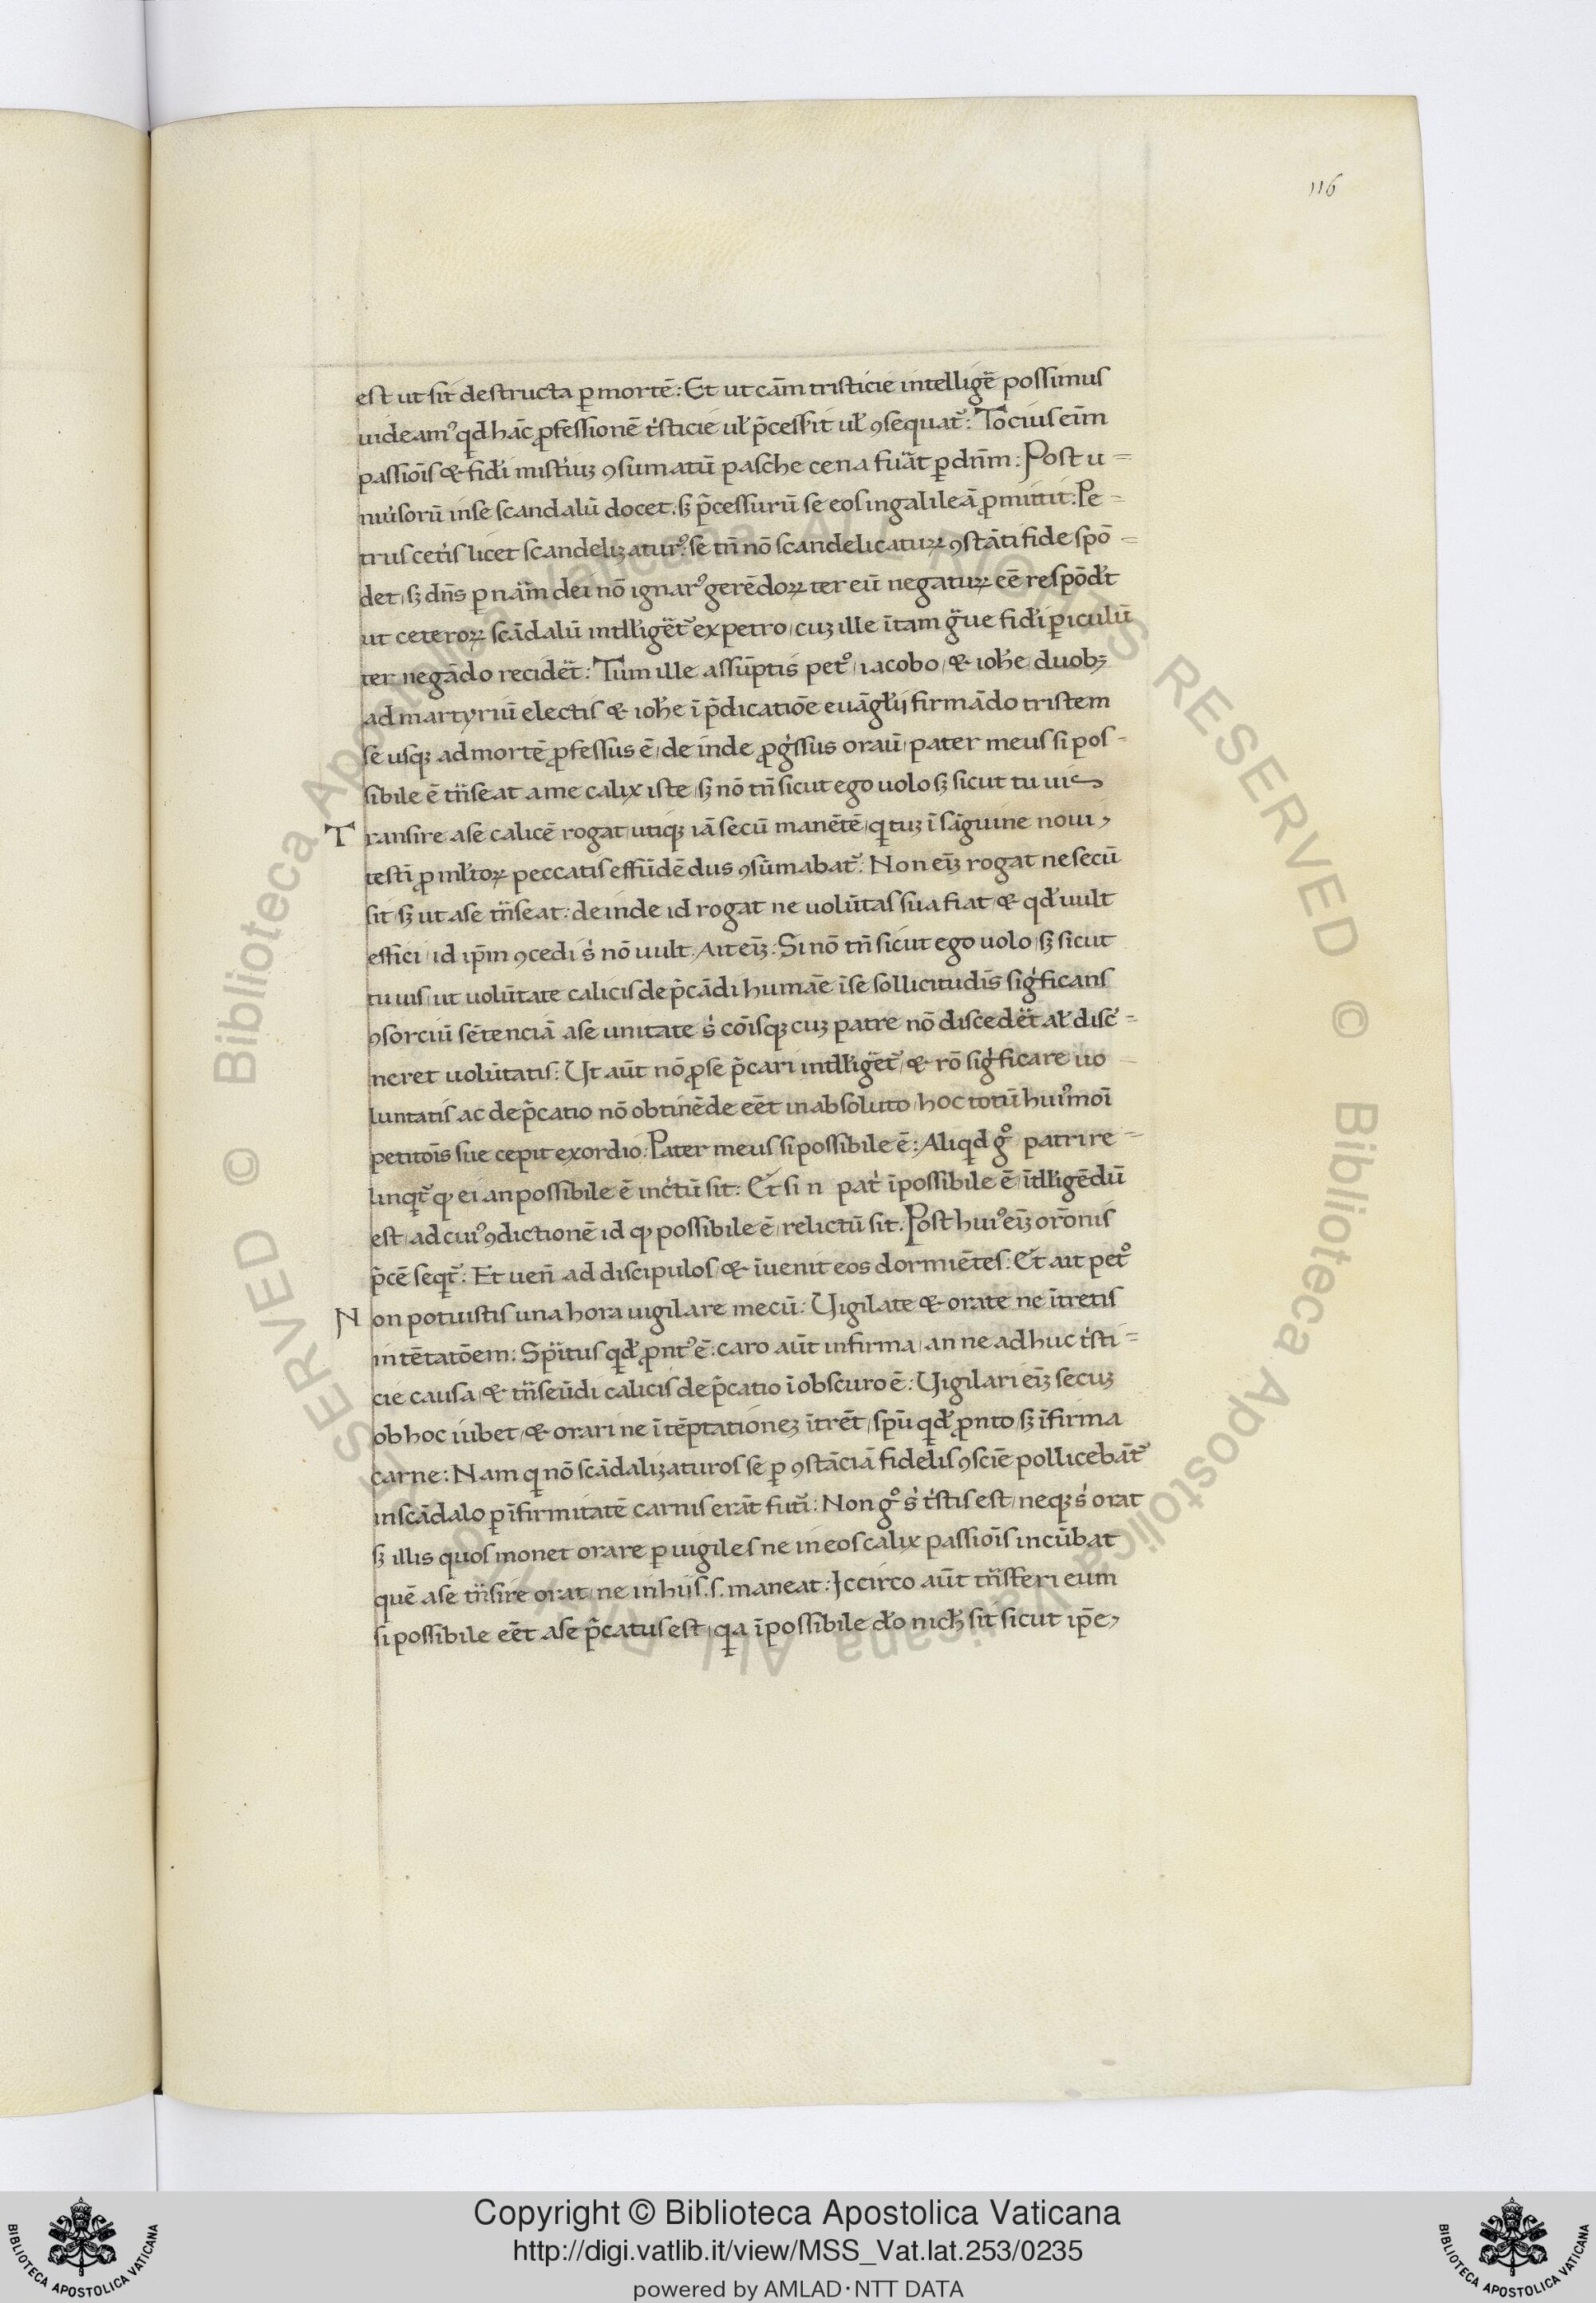 116
est ut sit destructa ꝑ mortē: Et ut cām tristicie intelligē possimus
uideamꝰ qd hāc ꝓfessionē tͥsticie ul̓ p̄cessit ul̓ ꝯsequat᷑: Tocius eīm
passiōis & fidi misti̓uꝫ ꝯsumatū pasche cena fuat̄ ꝑ dn̄m: Post u=
niu̓sorū in se scandalū docet. sꝫ p̄cessurū se eos in galileā ꝓmittit: Pe=
trus cetis̓ licet scandelizaturꝰ. se tn̄ nō scandelicatuꝝ ꝯstāti fide spō=
det, sꝫ dn̄s ꝑ nam̄ dei nō ignarꝰ gerēdoꝝ ter eū negatuꝝ eē respōdi̓t
ut ceteroꝝ scādalū intll̓iget̄᷑ ex petro, cuꝫ ille ītam gue̓ fidi̓ ꝑiculū
ter negādo recidet̄: Tum ille assūptis petꝰ, iacobo, & ioh̓e, duobꝫ
ad martyriū electis & ioh̓e ī p̄dicatiōe euāgl̓ij firmādo tristem
se usqꝫ ad mortē ꝓfessus ē, de inde ꝓgͥssus oraū, pater meus si pos-
sibile ē tn̄seat a me calix iste, sꝫ nō tn̄ sicut ego uolo sꝫ sicut tu uis
Transire a se calicē rogat, utiqꝫ iā secū manētē, q̇ tuꝫ ī sāguine noui,
testi̅ ꝓ ml̓toꝝ peccatis effūdēdus ꝯsūmabat᷑. Non eiꝫ̄ rogat ne secū
sit, sꝫ ut a se tn̄seat: de inde id rogat ne uolūtas sua fiat, & qd̓ uult
effici, id ip̄m ꝯcedi s̓ nō uult. Ait eiꝫ̄: Si nō tn̄ sicut ego uolo, sꝫ sicut
tu uis, ut uolūtate calicis dep̄cādi humāe ī se sollicitudīs sigͥficans
ꝯsorciū sētenciā a se unitate s̓ cōisqꝫ cuꝫ patre nō discedet̄ al̓ disc̓=
neret uolūtatis: Ut aūt nō ꝓ se p̄cari intll̓iget̄᷑, & rō sigͥficare uo
luntatis ac dep̄catio nō obtinēde eēt in absoluto, hoc totū huiꝰmoī
petitōis sue cepit exordio: Pater meus si possibile ē: Aliqd gͦ patri re=
linqt᷑ ꝙ ei an possibile ē inc̓tū sit: Et si n̄ pat̓ īpossibile ē, ītll̓igēdū
est, ad cuiꝰ ꝯdictionē id ꝙ possibile ē, relictū sit. Post huiꝰ eiꝫ̄ orōnis
p̄cē seqt᷑: Et uen̄ ad discipulos, & īuenit eos dormiētes: Et ait petͦ
Non potuistis una hora uigilare mecū: Uigilate & orate ne ītretis
in tētatōem: Spi̅tus qd̓ ꝓntꝰ ē: caro aūt infirma, an ne ad huc tͥsti=
cie causa, & tn̄seūdi calicis dep̄catio ī obscuro ē: Uigilari eiꝫ̄ secuꝫ
ob hoc iubet, & orari ne ī tēptationeꝫ ītrēt, spū qd̓ ꝓnto, sꝫ īfirma
carne: Nam q̇ nō scādalizaturos se ꝑ ꝯstāciā fidelis ꝯsciē pollicebāt᷑
in scādalo ꝑ īfirmitatē carnis erāt futi̓: Non gͦ s̓ tͥstis est, neqꝫ s̓ orat
sꝫ illis quos monet orare ꝑuigiles ne in eos calix passiōis incūbat
quē a se tn̄sire orat, ne in hiis .s. maneat: Iccirco aūt tn̄sferi eum
si possibile eēt a se p̄catus est, qa īpossibile do̓ nich̓ sit sicut ip̄e,
Copyright © Biblioteca Apostolica Vaticana
http://digi.vatlib.it/view/MSS_Vat.lat.253/0235
powered by AMLAD·NTT DATA